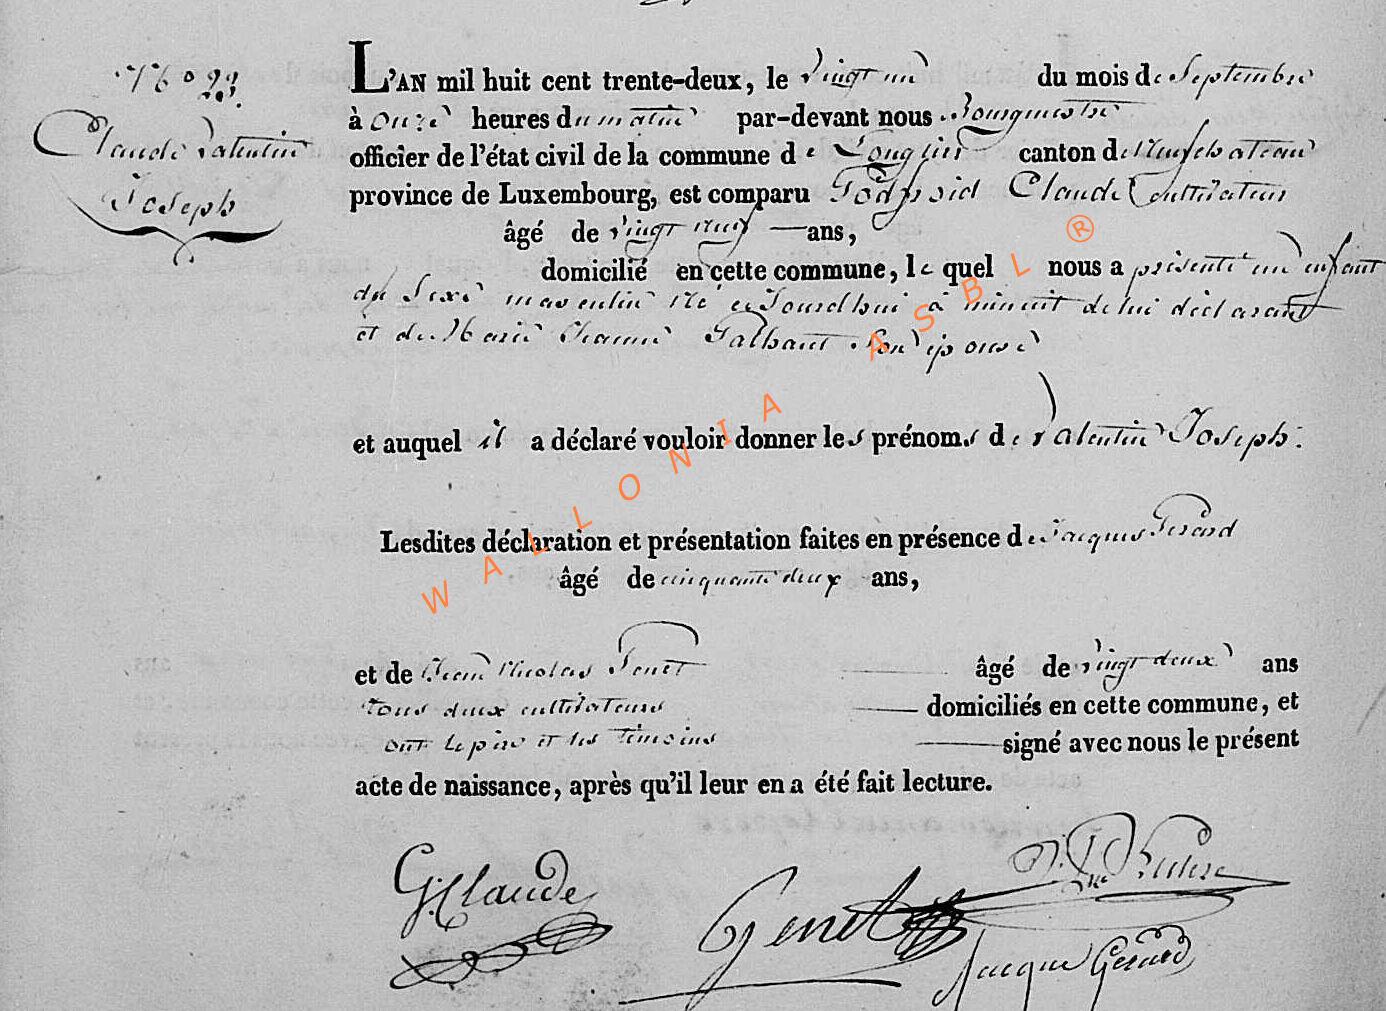 N° 23.
Claude Valentin
Joseph
L'AN mil huit cent trente-deux, le vingt un du mois de Septembre
à onze heures du matin par-devant nous Bourgmestre
officier de l'état civil de la commune de Longlier canton de Neufchateau
province de Luxembourg, est comparu Godfroid Claude Cultivateur
âgé de vingt neuf ans,
domicilié en cette commune, le quel nous a présenté un enfant
du Sexe masculin né aujourdhui à minuit de lui déclarant
et de Marie Jeanne Son épouse
et auquel il a déclaré vouloir donner les prénoms de Valentin Joseph.
Lesdites déclaration et présentation faites en présence de Jacques Gerard
âgé de cinquante deux ans,
et de Jean Nicolas Genet âgé de vingt deux ans
tous deux cultivateurs domiciliés en cette commune, et
ont le père et les témoins signé avec nous le présent
acte de naissance, après qu'il leur en a été fait lecture.
G: Claude
Genet
Jacque Gerard
WALLONIA ASBL ®